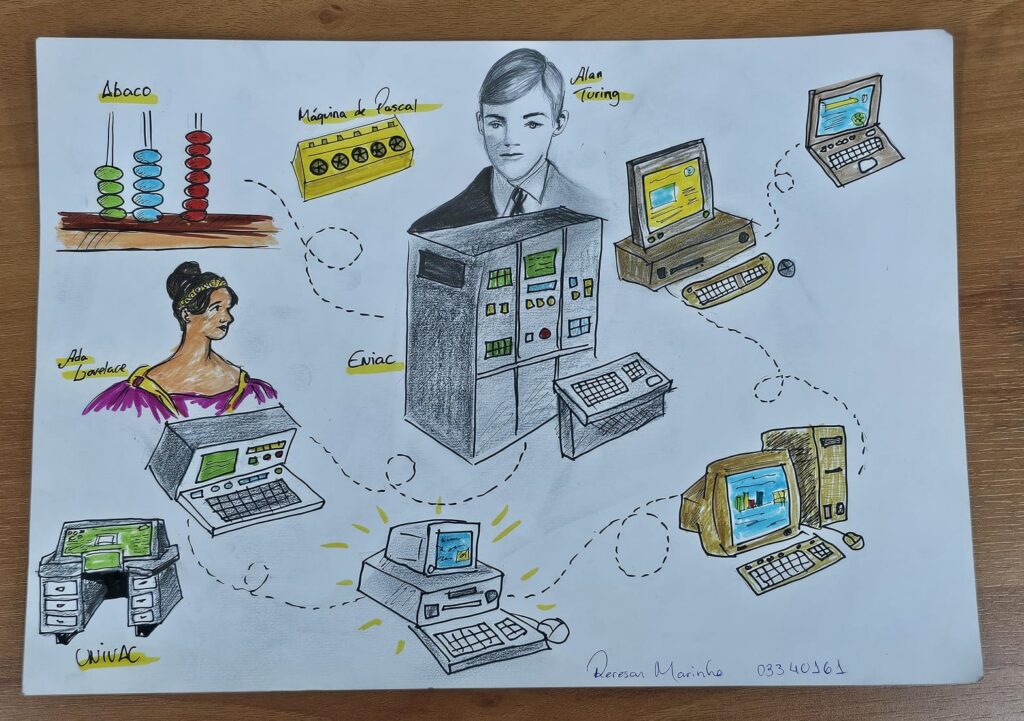 Abaco
Máquina de Pascal
Alan
Turing
Ada
Lovelace
Eniac
UNIVAC
Marinho 0340161